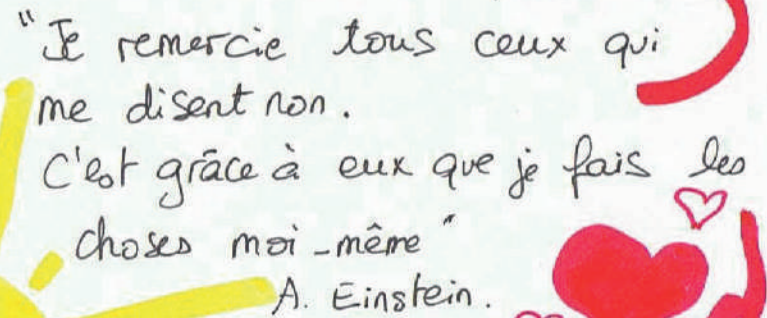 "Je remercie tous ceux qui
me disent non.
C'est grâce à eux que je fais les
choses moi-même"
A. Einstein.